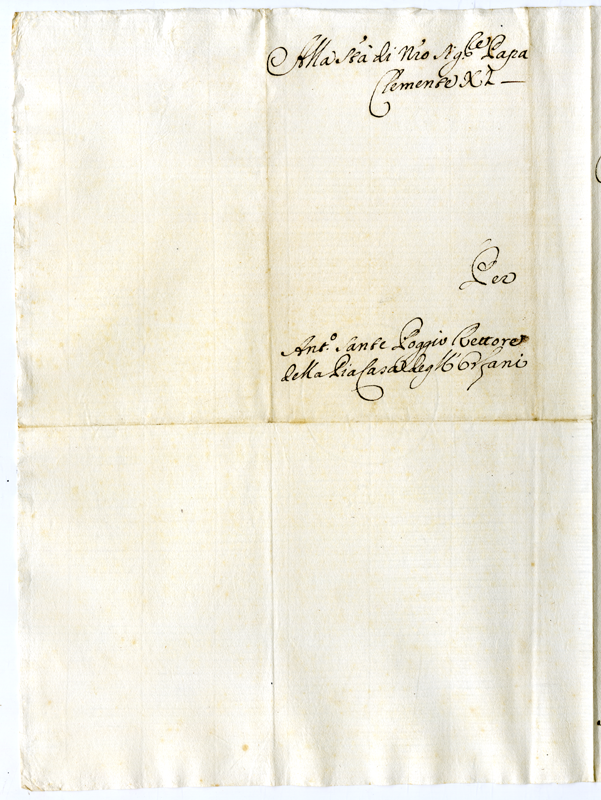 Alla Stà di Nro Sig.re Papa
Clemente XI
Per
Ant.o Sante Poggio Rettore
della Pia Casa degl' Orfani